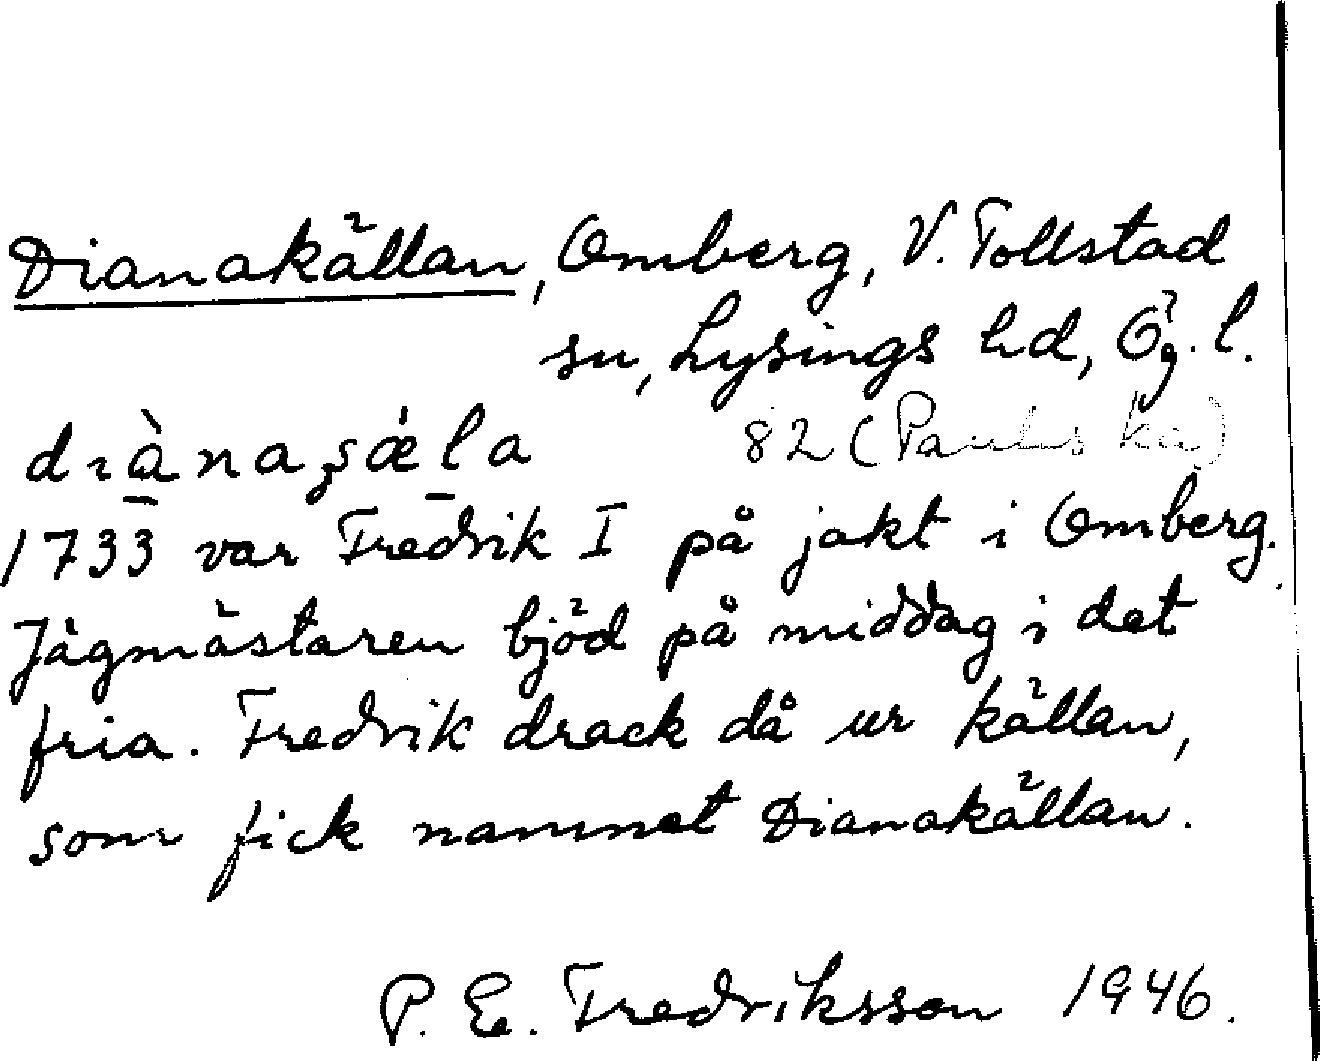 Dianakällan, Omberg, V. Tollstad
sn, Lysings hd, Ög. l.
dıànaʂǽla 82 (Paulus ka)
1733 var Fredrik I på jakt i Omberg.
Jägmästaren bjöd på middag i det
fria. Fredrik drack då ur källan,
som fick namnet Dianakällan.
P. E. Fredriksson 1946.